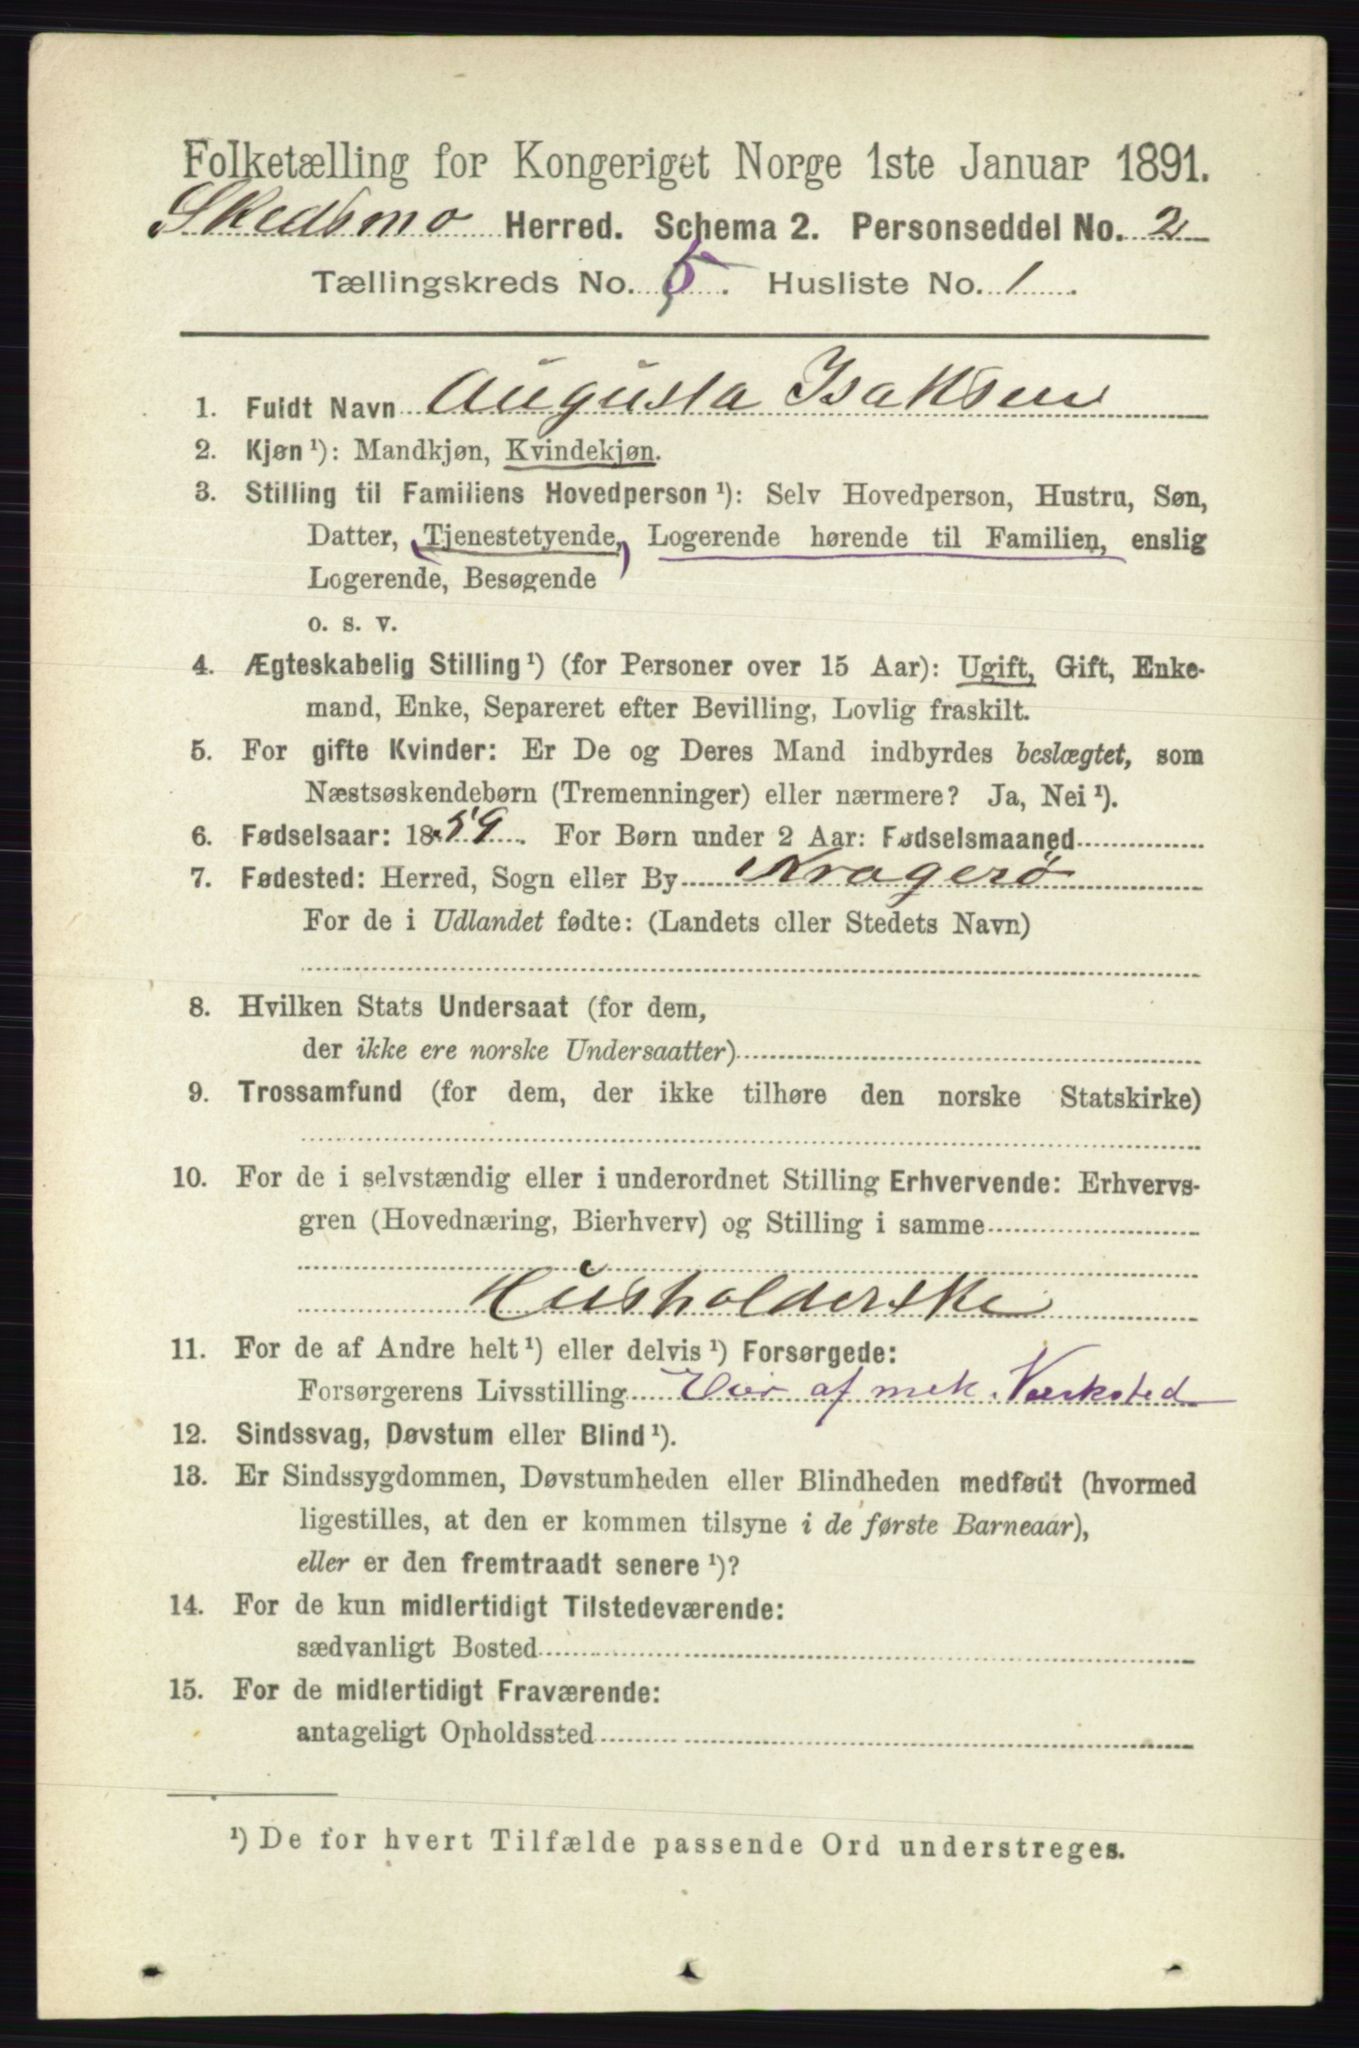 Folketælling for Kongeriget Norge 1ste Januar 1891.
Skedsmo Herred. Schema 2. Personseddel No. 2
Tællingskreds No. 5. Husliste No. 1.
1. Fuldt Navn Augusta Isaksen
2. Kjøn ¹): Mandkjøn, Kvindekjøn.
3. Stilling til Familiens Hovedperson ¹): Selv Hovedperson, Hustru, Søn,
Datter, (Tjenestetyende,) Logerende hørende til Familien, enslig
Logerende, Besøgende
o. s. v.
4. Ægteskabelig Stilling ¹) (for Personer over 15 Aar): Ugift, Gift, Enke-
mand, Enke, Separeret efter Bevilling, Lovlig fraskilt.
5. For gifte Kvinder: Er De og Deres Mand indbyrdes beslægtet, som
Næstsøskendebørn (Tremenninger) eller nærmere? Ja, Nei ¹).
6. Fødselsaar: 1859. For Børn under 2 Aar: Fødselsmaaned
7. Fødested: Herred, Sogn eller By Kragerø
For de i Udlandet fødte: (Landets eller Stedets Navn)
8. Hvilken Stats Undersaat (for dem,
der ikke ere norske Undersaatter)
9. Trossamfund (for dem, der ikke tilhøre den norske Statskirke)
10. For de i selvstændig eller i underordnet Stilling Erhvervende: Erhvervs-
gren (Hovednæring, Bierhverv) og Stilling i samme
Husholderske
11. For de af Andre helt ¹) eller delvis ¹) Forsørgede:
Forsørgerens Livsstilling Eier af mek. Værksted
12. Sindssvag, Døvstum eller Blind ¹).
13. Er Sindssygdommen, Døvstumheden eller Blindheden medfødt (hvormed
ligestilles, at den er kommen tilsyne i de første Barneaar),
eller er den fremtraadt senere ¹)?
14. For de kun midlertidigt Tilstedeværende:
sædvanligt Bosted
15. For de midlertidigt Fraværende:
antageligt Opholdssted
¹) De for hvert Tilfælde passende Ord understreges.